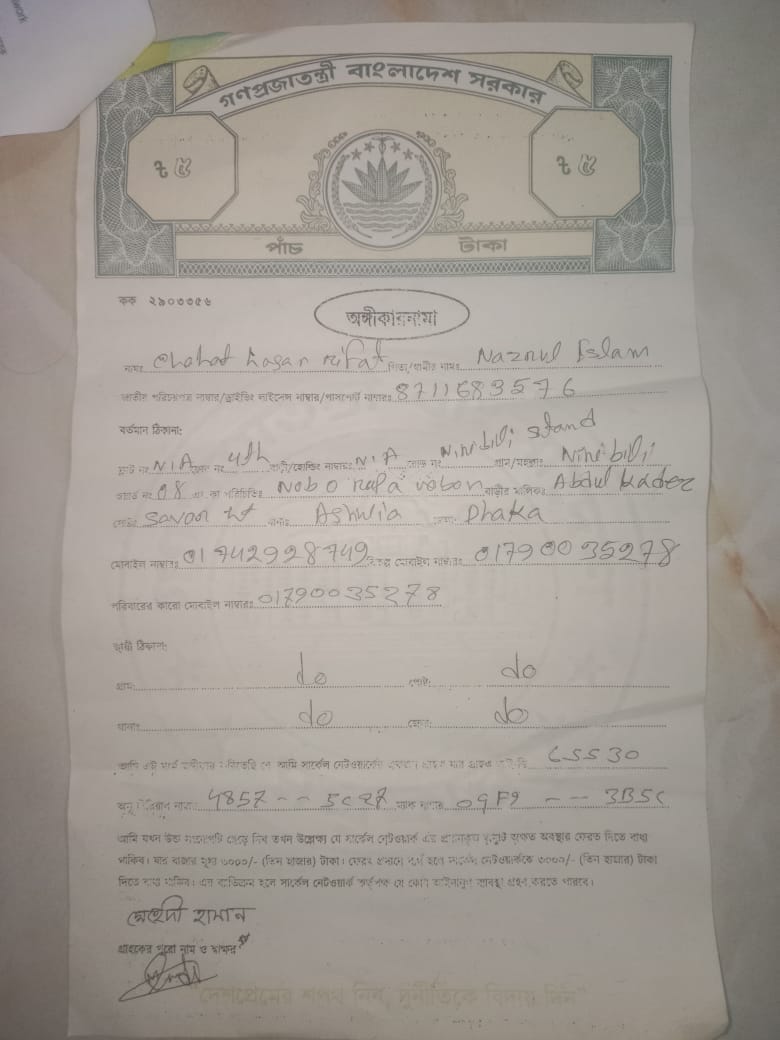 গণপ্রজাতন্ত্রী বাংলাদেশ সরকার
৳ ৫ ৳ ৫
পাঁচ টাকা
কক ২৯০৩৩৫৬
অঙ্গীকারনামা
নামঃ hasan Rifat পিতা/স্বামীর নামঃ Nazrul Islam
জাতীয় পরিচয়পত্র নাম্বার/ড্রাইভিং লাইসেন্স নাম্বার/পাসপোর্ট নাম্বারঃ 8711683576
বর্তমান ঠিকানা:
ফ্লাট নং N/A 4th বাড়ী/হোল্ডিং নাম্বারঃ N/A রোড নং Niribili Stand গ্রাম/মহল্লাঃ Niribili
ওয়ার্ড নং 08 পরিচিতিঃ Nobo বাড়ীর মালিকঃ Abdul kader
থানাঃ Ashulia জেলাঃ Dhaka
মোবাইল নাম্বারঃ 01742928749 মোবাইল নাম্বারঃ 01790035278
পরিবারের কারো মোবাইল নাম্বারঃ 01790035278
স্থায়ী ঠিকানা:
গ্রাম: do পোষ্ট: do
থানাঃ do জেলাঃ do
আমি এই মর্মে যে আমি সার্কেল নেটওয়ার্কের গ্রাহক যার গ্রাহক 65530
4857 -- 5C27 ম্যাক 09F9 --- 3B5C
আমি যখন উক্ত ছেড়ে দিব তখন উল্লেখ্য যে সার্কেল নেটওয়ার্ক এর অক্ষত অবস্থায় ফেরত দিতে বাধ্য
থাকিব। যার বাজার মূল্য ৩০০০/- (তিন হাজার) টাকা। ফেরত প্রদানে ব্যর্থ হলে সার্কেল নেটওয়ার্ককে ৩০০০/- (তিন হাজার) টাকা
দিতে বাধ্য থাকিব। এর ব্যতিক্রম হলে সার্কেল নেটওয়ার্ক কর্তৃপক্ষ যে কোন আইনানুগ ব্যবস্থা গ্রহণ করতে পারবে।
মেহেদী হাসান
গ্রাহকের পুরো নাম ও স্বাক্ষর
"দেশপ্রেমের শপথ নিন, দুর্নীতিকে বিদায় দিন"